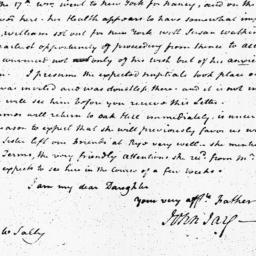 the 17th ult. went to New York for Nancy, and on the
was here: his Health appears to have somewhat imp
William set out for New York with Susan Watkin
earliest opportunity of proceeding from thence to all
convinced not only of his wish but of his anxie
I presume the expected nuptials took place on
was invited and was doubtless there. and it is not im
will see him before you receive this Letter.
will return to Oak Hill immediately, is uncer
reason to expect that she will previously favor us w
Sister left our Friends at Rye very well. she ment
Terms, the very friendly attentions she recd. from Mr.
expects to see him in the course of a few weeks.
I am my dear Daughter
your very affte. Father
John Jay
Sally